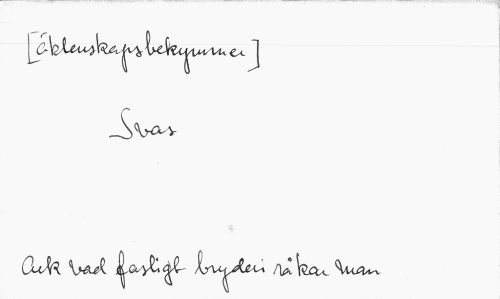 [äktenskapsbekymmer]
Svas
Ack vad fasligt bryderi råkar man